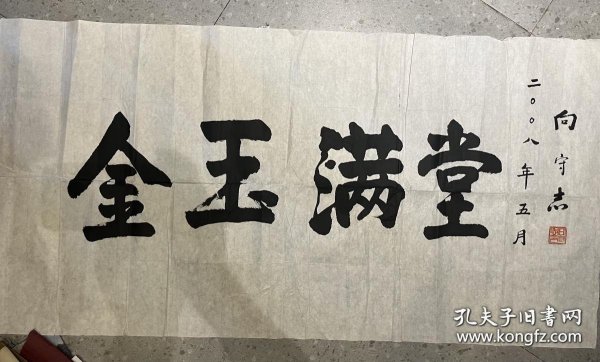 金玉满堂
二〇〇八年五月
向守志
孔夫子旧书网
www.kongfz.com